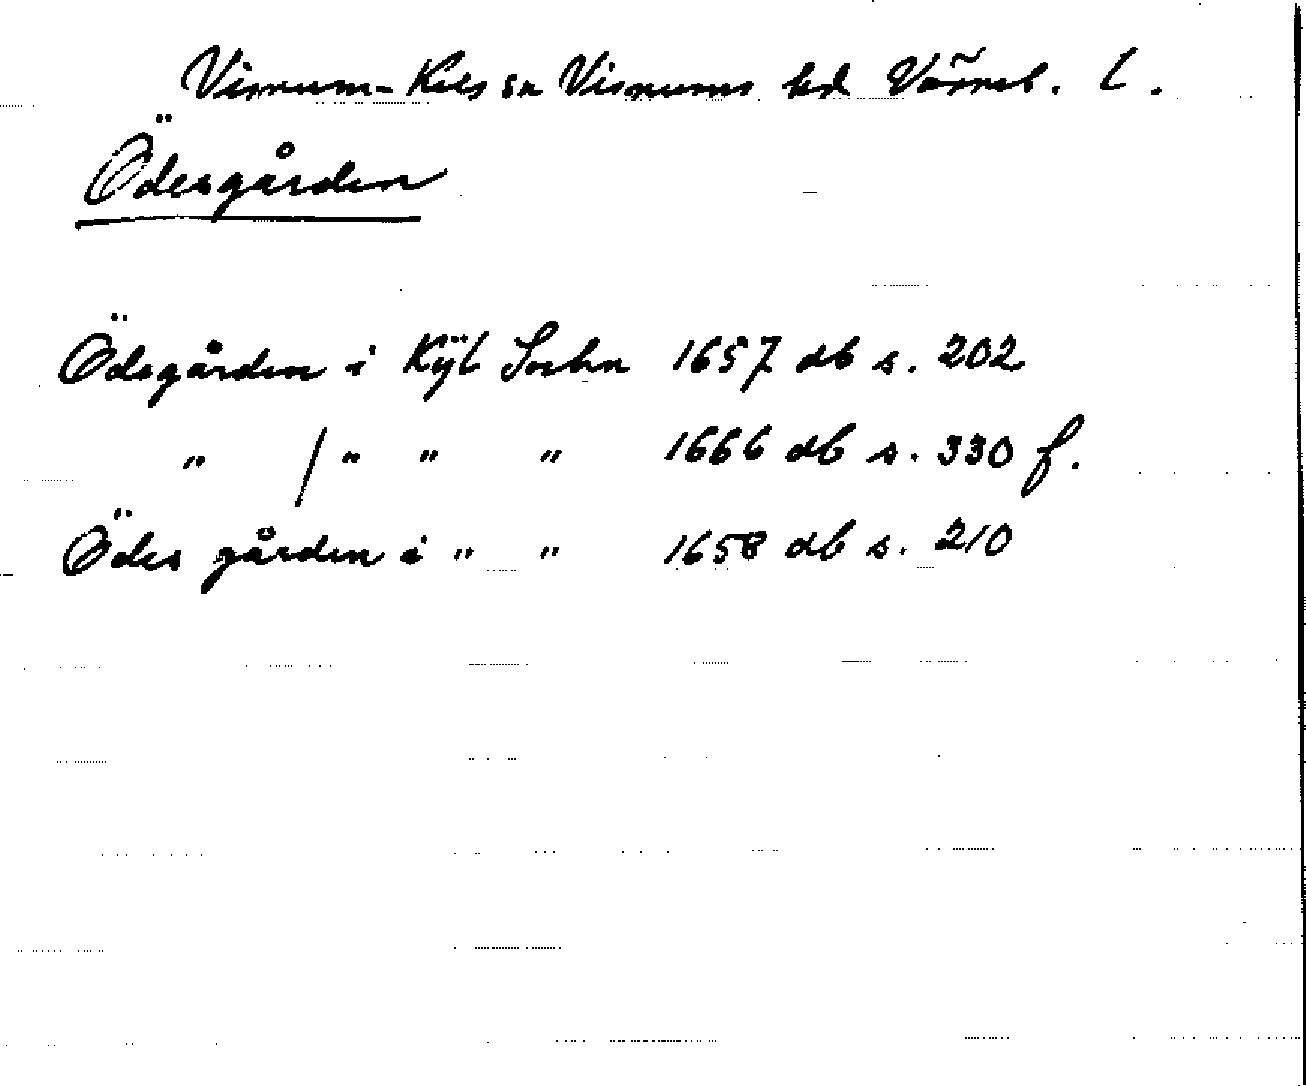 Visnum-Kils sn Visnums hd Värml. l.
Ödesgården
Ödegården i Kÿl Sochn 1657 db s. 202
" / " " " 1666 db s. 330 f.
Ödes gården i " " 1658 db s. 210